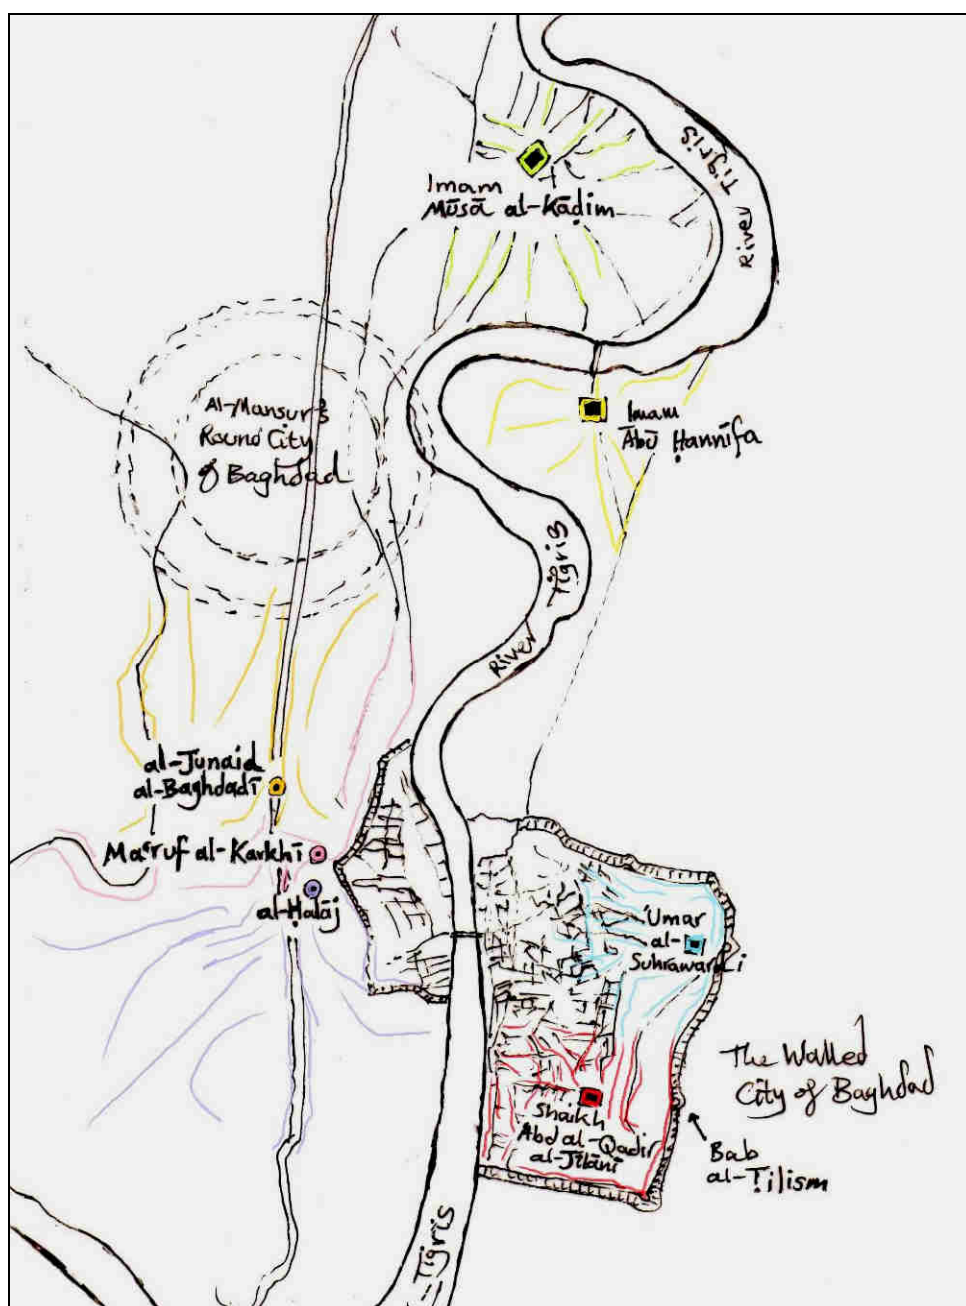 River Tigris
Imam
Mūsā al-Kāḍim
Al-Mansur's
Round City
of Baghdad
Imam
Ābū Ḥannīfa
River Tigris
al-Junaid
al-Baghdadī
Ma'ruf al-Karkhī
al-Ḥalāj
'Umar
al-
Suhrawardi
The Walled
City of Baghdad
Shaikh
'Abd al-Qadir
al-Jīlānī
Bab
al-Ṭilism
Tigris